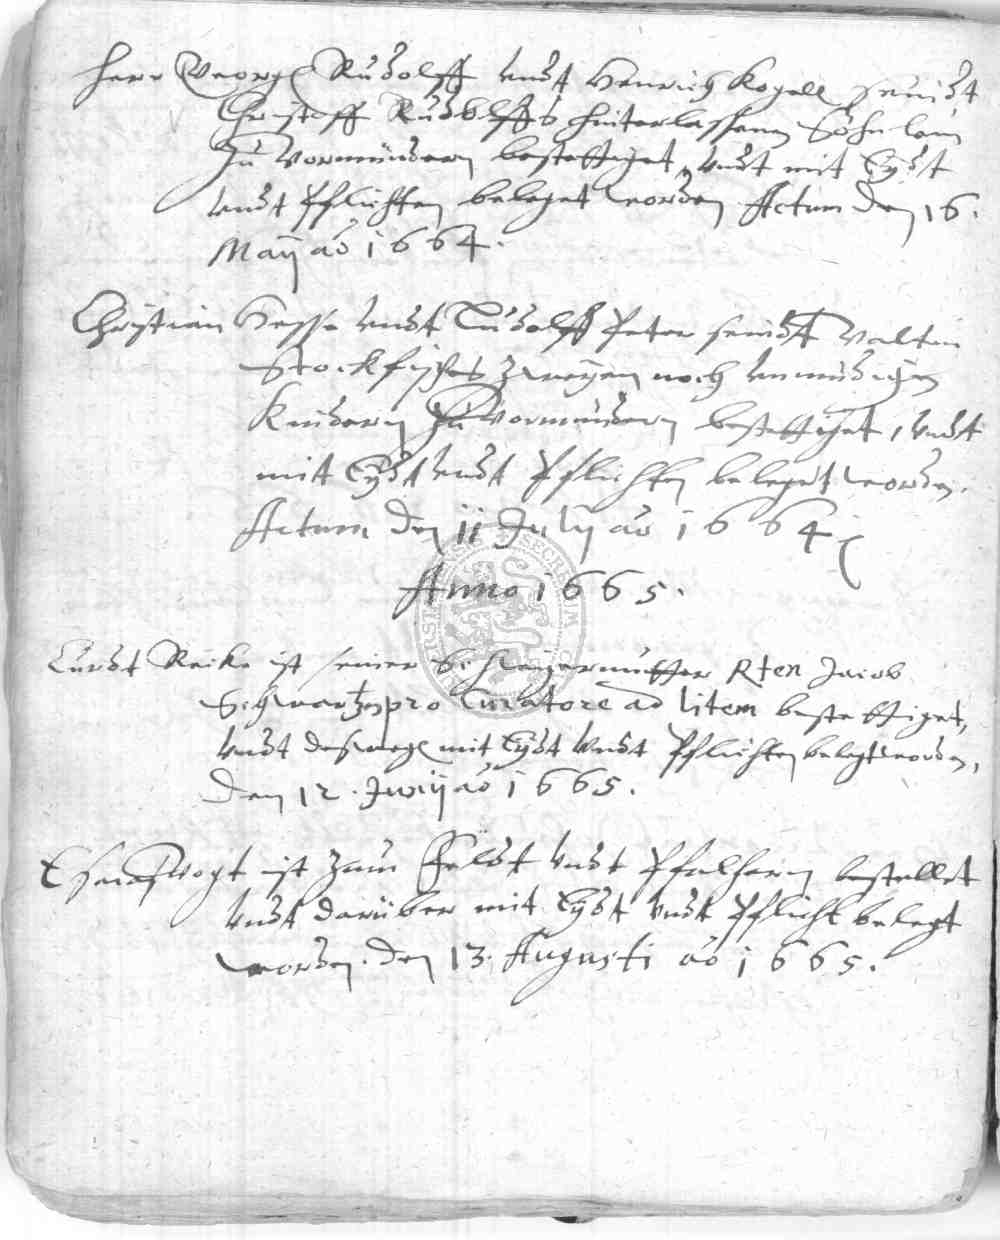 Herr Georg Rudolff undt Henrich Kogell seindt
Christoff Rudolffs hinterlassenen Söhnlein
zu Vormündern bestettiget, undt mit Eydt
undt Pflichten beleget worden. Actum den 16.
Maÿ ao 1664.
Christian Hesse undt Ludolff Peter seindt Valtin
Stockfisches zweyen noch unmündigen
Kindern zu Vormündern bestettiget, undt
mit Eydt undt Pflichten beleget worden.
Actum den 11 Julÿ ao 1664
Anno 1665.
Curdt Reike ist seiner Schwigermutter Jacob
Schwartzen pro Curatore ad litem bestettiget,
undt deswegen mit Eydt undt Pflichten belegt worden,
den 12. Junÿ ao 1665.
Vogt ist zum Feldt undt bestellet
undt darüber mit Eydt undt Pflicht belegt
worden. den 13. Augusti ao 1665.
SECRETUM